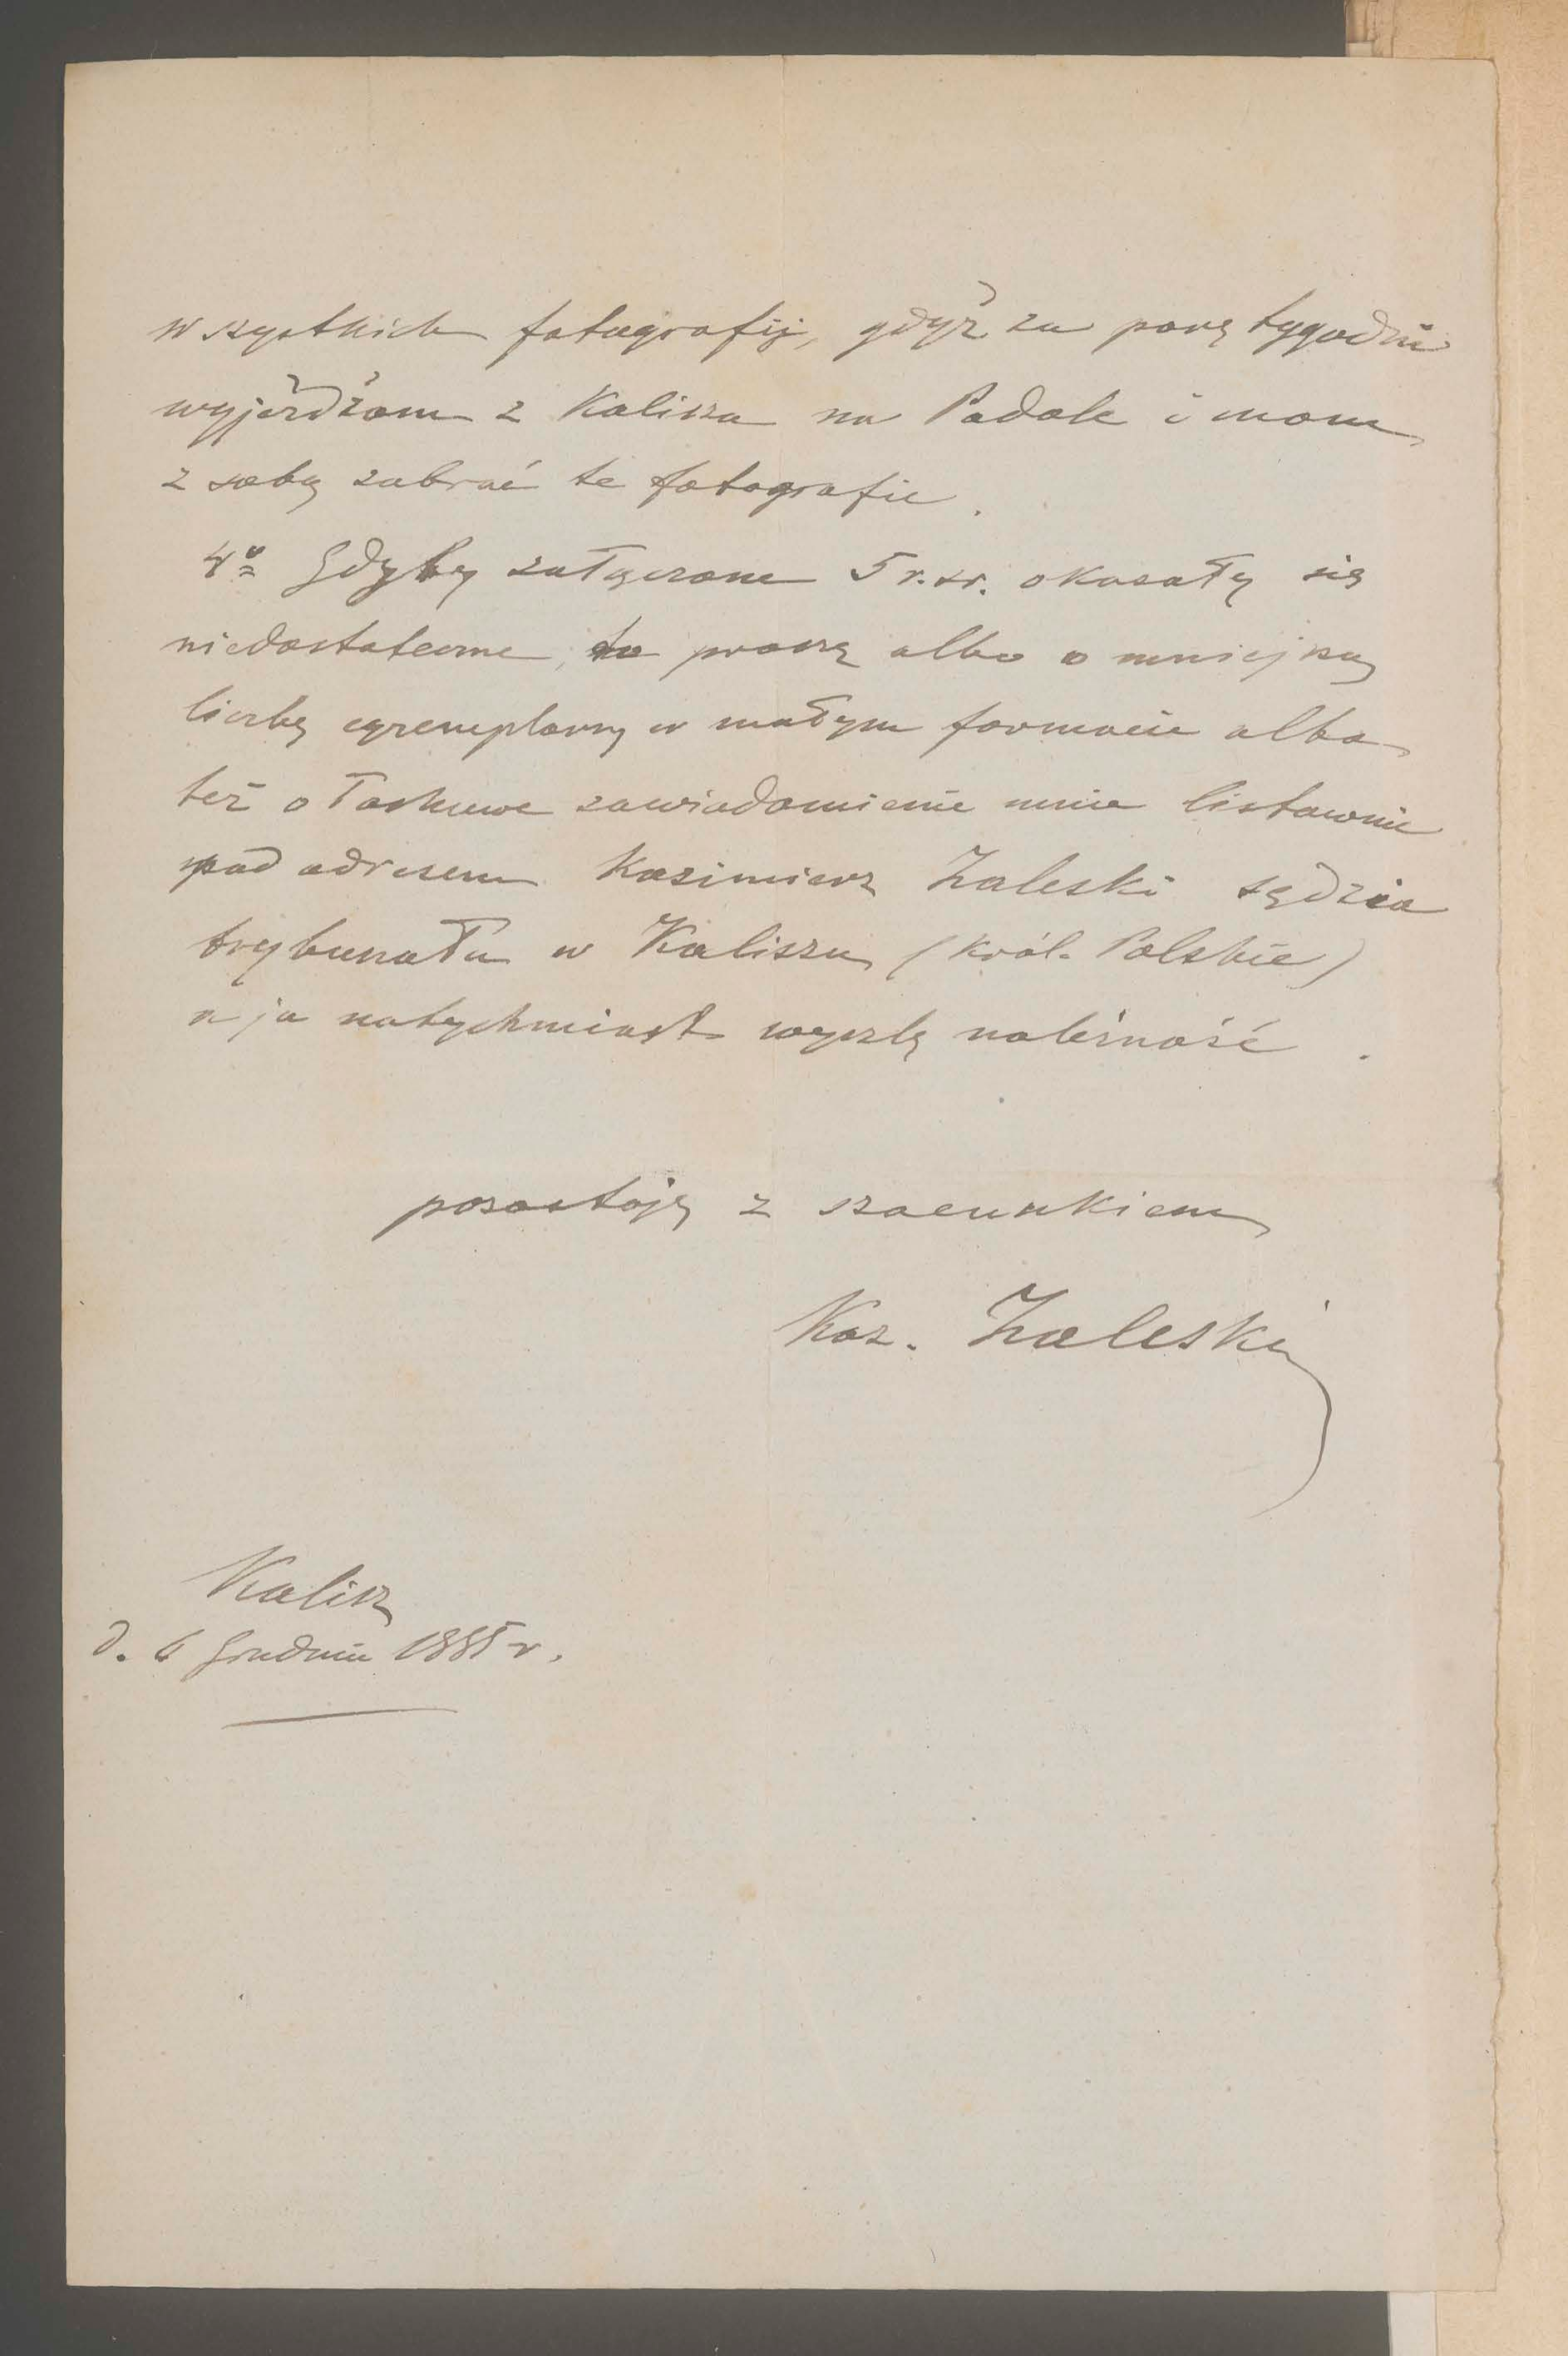 wszystkich fotografij, gdyż za parę tygodni
wyjeżdżam z Kalisza na Podole i mam
z sobą zabrać te fotografie.
4º Gdyby załączone 5 r.sr. okazały się
niedostateczne, to proszę albo o mniejszą
liczbę egzemplarzy w małym formacie albo
też o łaskawe zawiadomienie mnie listownie
pod adresem Kazimierz Zaleski sędzia
trybunału w Kaliszu (Król. Polskie)
a ja natychmiast wyszlę należność.
pozostaję z szacunkiem
Kaz. Zaleski
Kalisz
d. 6 Grudnia 1885 r.